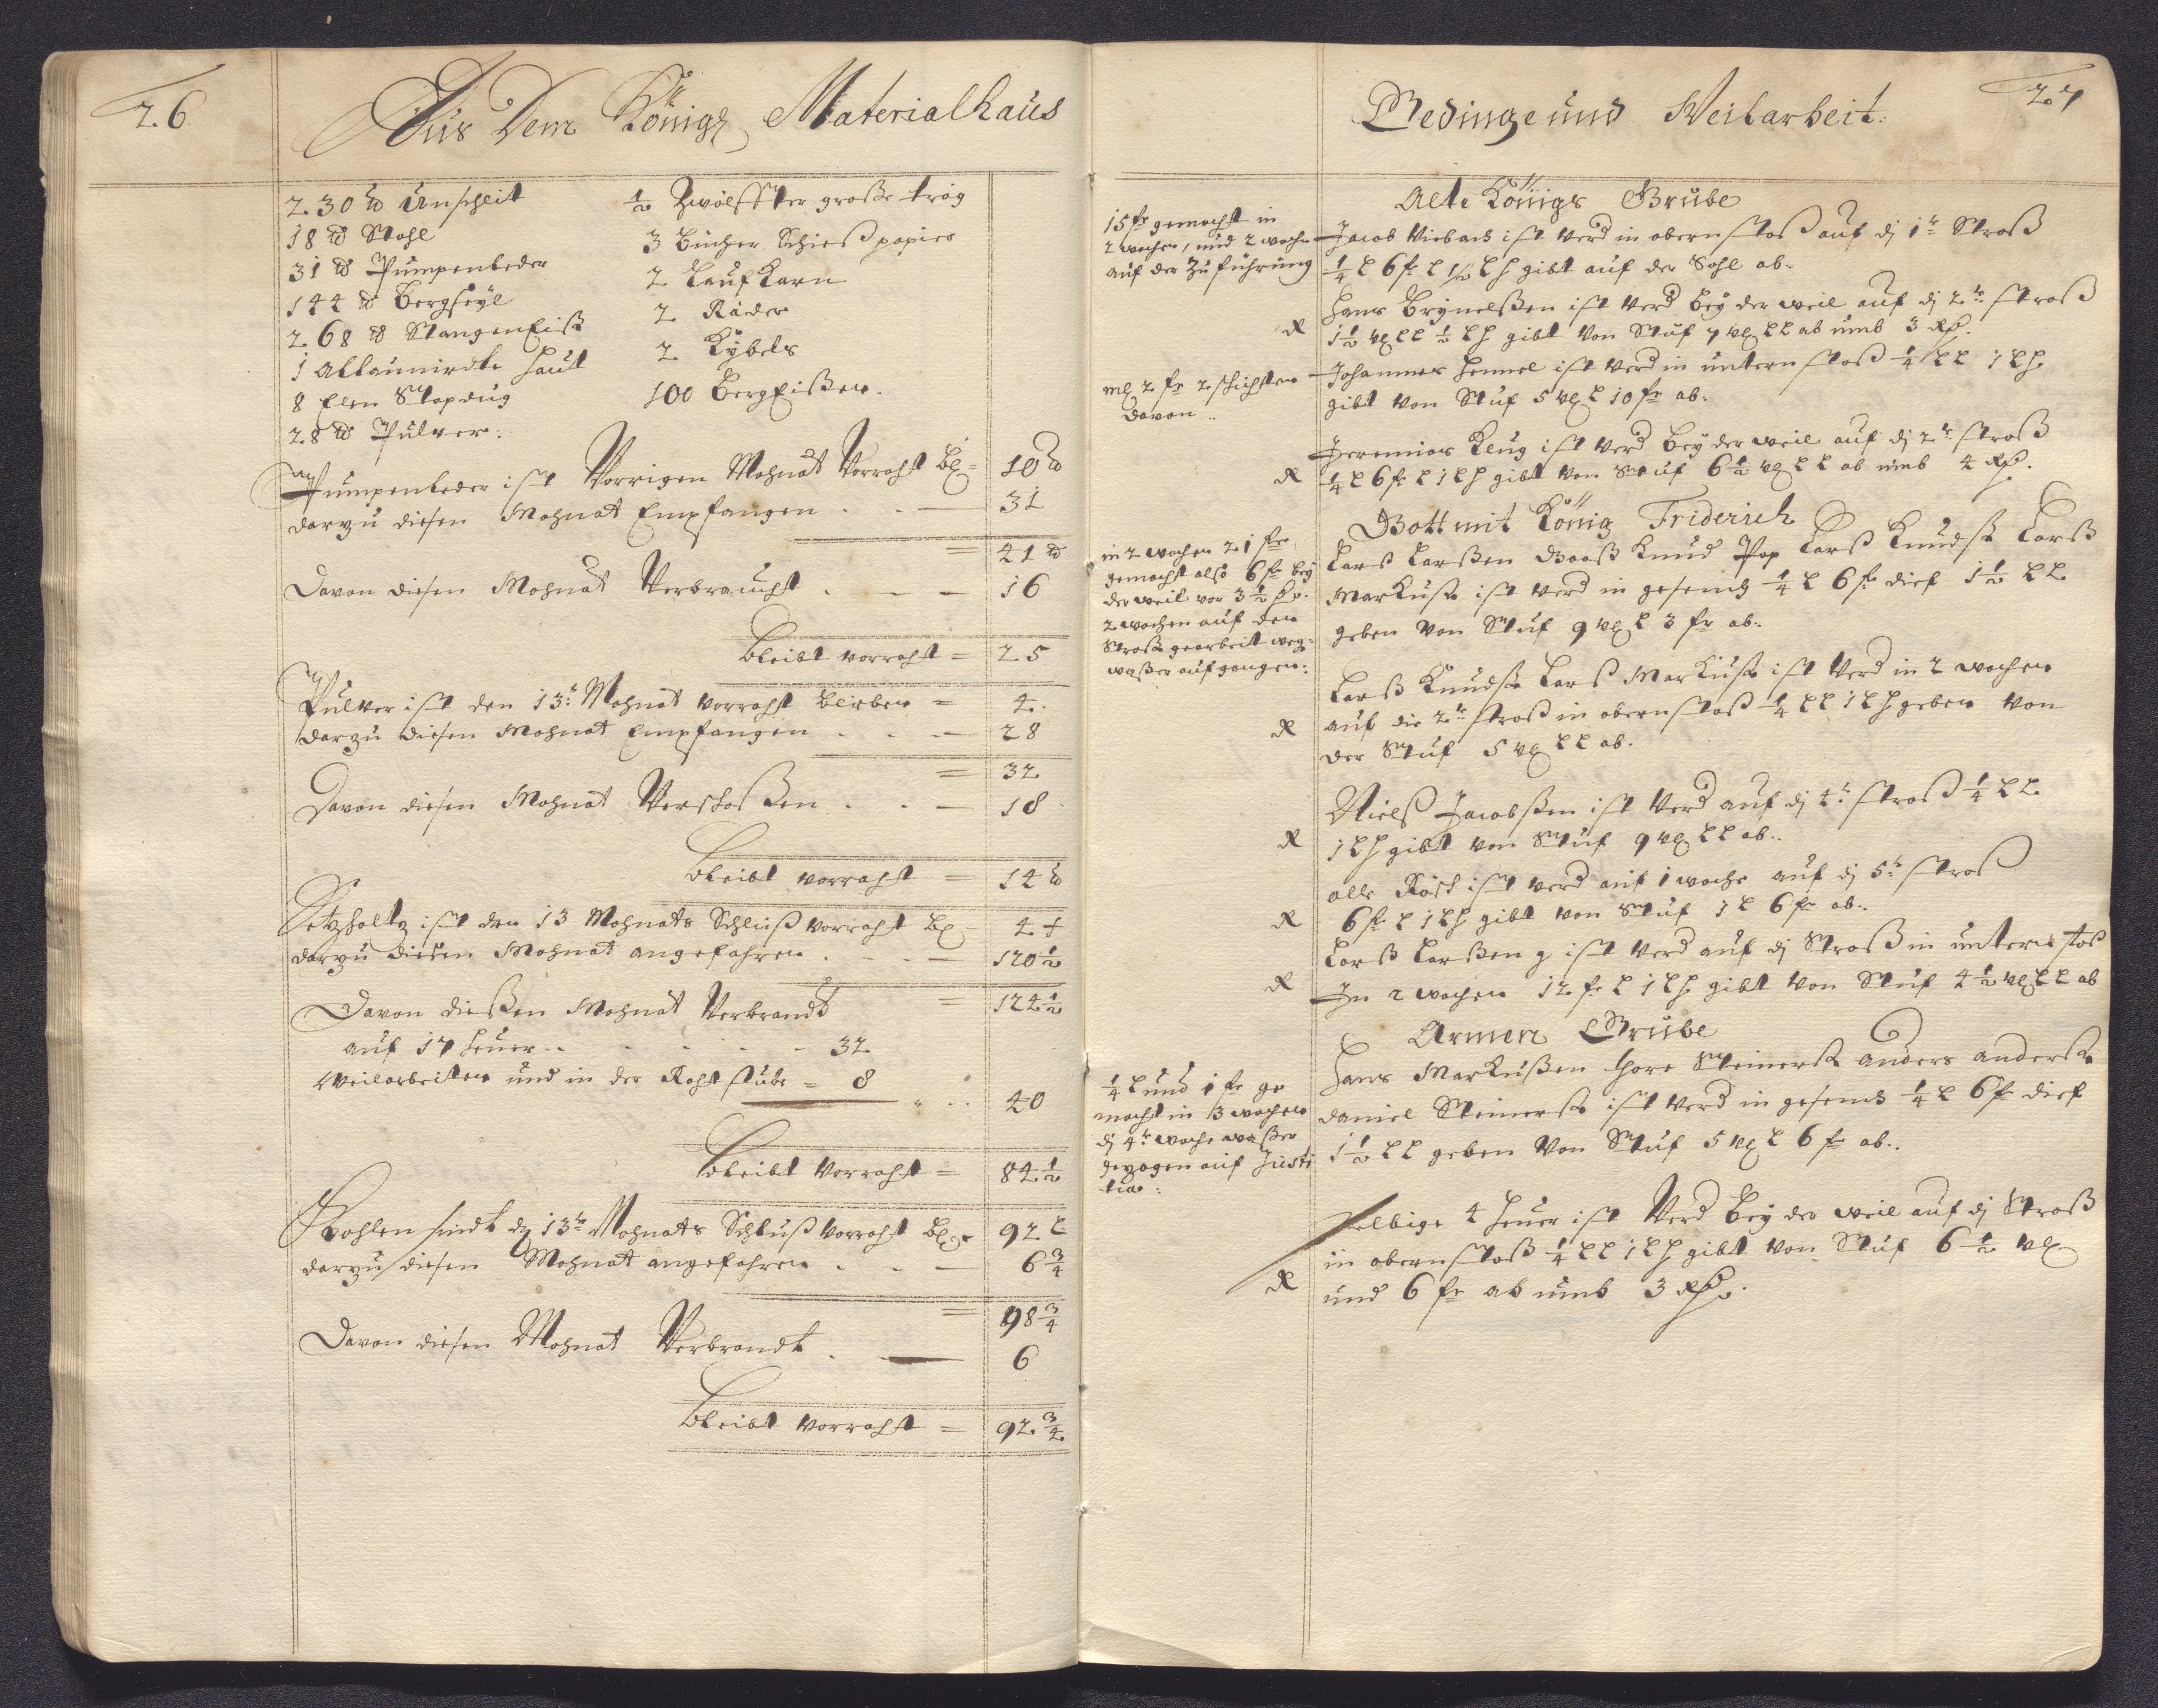 26
Aus Dem Königl Materialhaus
230 ℔ Unschleit
18 ℔ Stahl
31 ℔ Pumpenleder
144 ℔ Bergseyl
268 ℔ Stangen Eiß
1 Allaunirdte Haut
8 Elen Stopdug
28 ℔ Pulver.
½ Zwölffter große trög
3 Bücher Schieß papier
2 Lauf Karn
2 Räder
2 Kybels
100 Berg Eißen.
Pumpenleder ist Vorrigen Mohnat Vorraht Bl = 10 ℔
darzu diesen Mohnat Empfangen . . — 31
= 41 ℔
Davon diesen Mohnat Verbraucht . — — 16
Bleibt vorraht = 25
Pulver ist den 13t Mohnat vorraht blieben = 4.
darzu diesen Mohnat Empfangen . . — 28
= 32
Davon diesen Mohnat Verschoßen . . — 18
Bleibt vorraht = 14 ℔
Setzholtz ist den 13 Mohnats Schluß vorraht Bl = 4 f
darzu diesen Mohnat angefahren . . — 120½
= 124½
Davon dießen Mohnat Verbrandt
auf 17 Heuer . . . . . 32
Weilarbeiten und in der Rohtstube = 8
40
Bleibt Vorraht = 84½
Kohlen sindt d 13te Mohnats Schluß Vorraht Bl = 92 L
darzu diesen Mohnat angefahren . . — 6¾
= 98¾
Davon diesen Mohnat Verbrandt . — 6
Bleibt vorraht = 92¾
27
Gedinge und Weilarbeit.
Alte Königs Grube
15 fr gemacht in
2 wochen, und 2 wochn
auf der Zuführung
Jacob Viebach ist Verd in obern stoß auf dj 1te Stroß
¼ L 6 fr L ½ L H gibt auf der Sohl ab.
Hans Brynelßen ist Verd bey der weil auf dj 2te stroß
R 1½ vl LL ½ L H gibt Von Stuf 7 vl LL ab umb 3 Rß.
ml 2 fr 2 schichten
davon ..
Johannes Hennel ist Verd in untern stoß ¼ LL 1 L H
gibt Von Stuf 5 vl L 10 fr ab.
Jeremias Klug ist Verd bey der weil auf dj 2te stroß
R ¼ L 6 fr L 1 L H gibt Von Stuf 6½ vl LL ab umb 4 Rß.
Gott mit König Friderich
in 2 wochen 21 fr
gemacht also 6 fr bey
der weil vor 3½
2 wochen auf den
Stroße gearbeit weg
waßer aufgangen.
Larß Larßen Knud Pop Larß Knudße Larß
Markuße ist Verd in gesenck ¼ L 6 fr dief 1½ LL
geben Von Stuf 9 vl L 3 fr ab.
Larß Knudße Larß Markuße ist Verd in 2 wochen
R auf die 2te stroß in obern stoß ¼ LL 1 L H geben Von
der Stuf 5 vl LL ab.
Nielß Jacobßen ist Verd auf dj 4te stroß ¼ LL
R 1 L H gibt Von Stuf 9 vl LL ab..
olle Röst ist Verd auf 1 woche auf dj 5te stroß
R 6 fr L 1 L H gibt Von Stuf 1 L 6 fr ab..
Larß Larßen g ist Verd auf dj Stroß in untern stoß
R In 2 wochen 12 fr L 1 L H gibt Von Stuf 4½ vl LL ab
Armen Grube
¼ L und 1 fr ge
macht in 3 wochen
dj 4te woche waßer
gezogen auf Justi
tia.
Hans Markußen Thore Steinerße Anders anderße
Daniel Steinerße ist Verd in gesenck ¼ L 6 fr dief
1½ LL geben Von Stuf 5 vl L 6 fr ab..
Selbige 4 Heuer ist Verd bey der weil auf dj Stroß
in obern stoß ¼ LL 1 L H gibt Von Stuf 6½ vl
R und 6 fr ab umb 3 Rß.